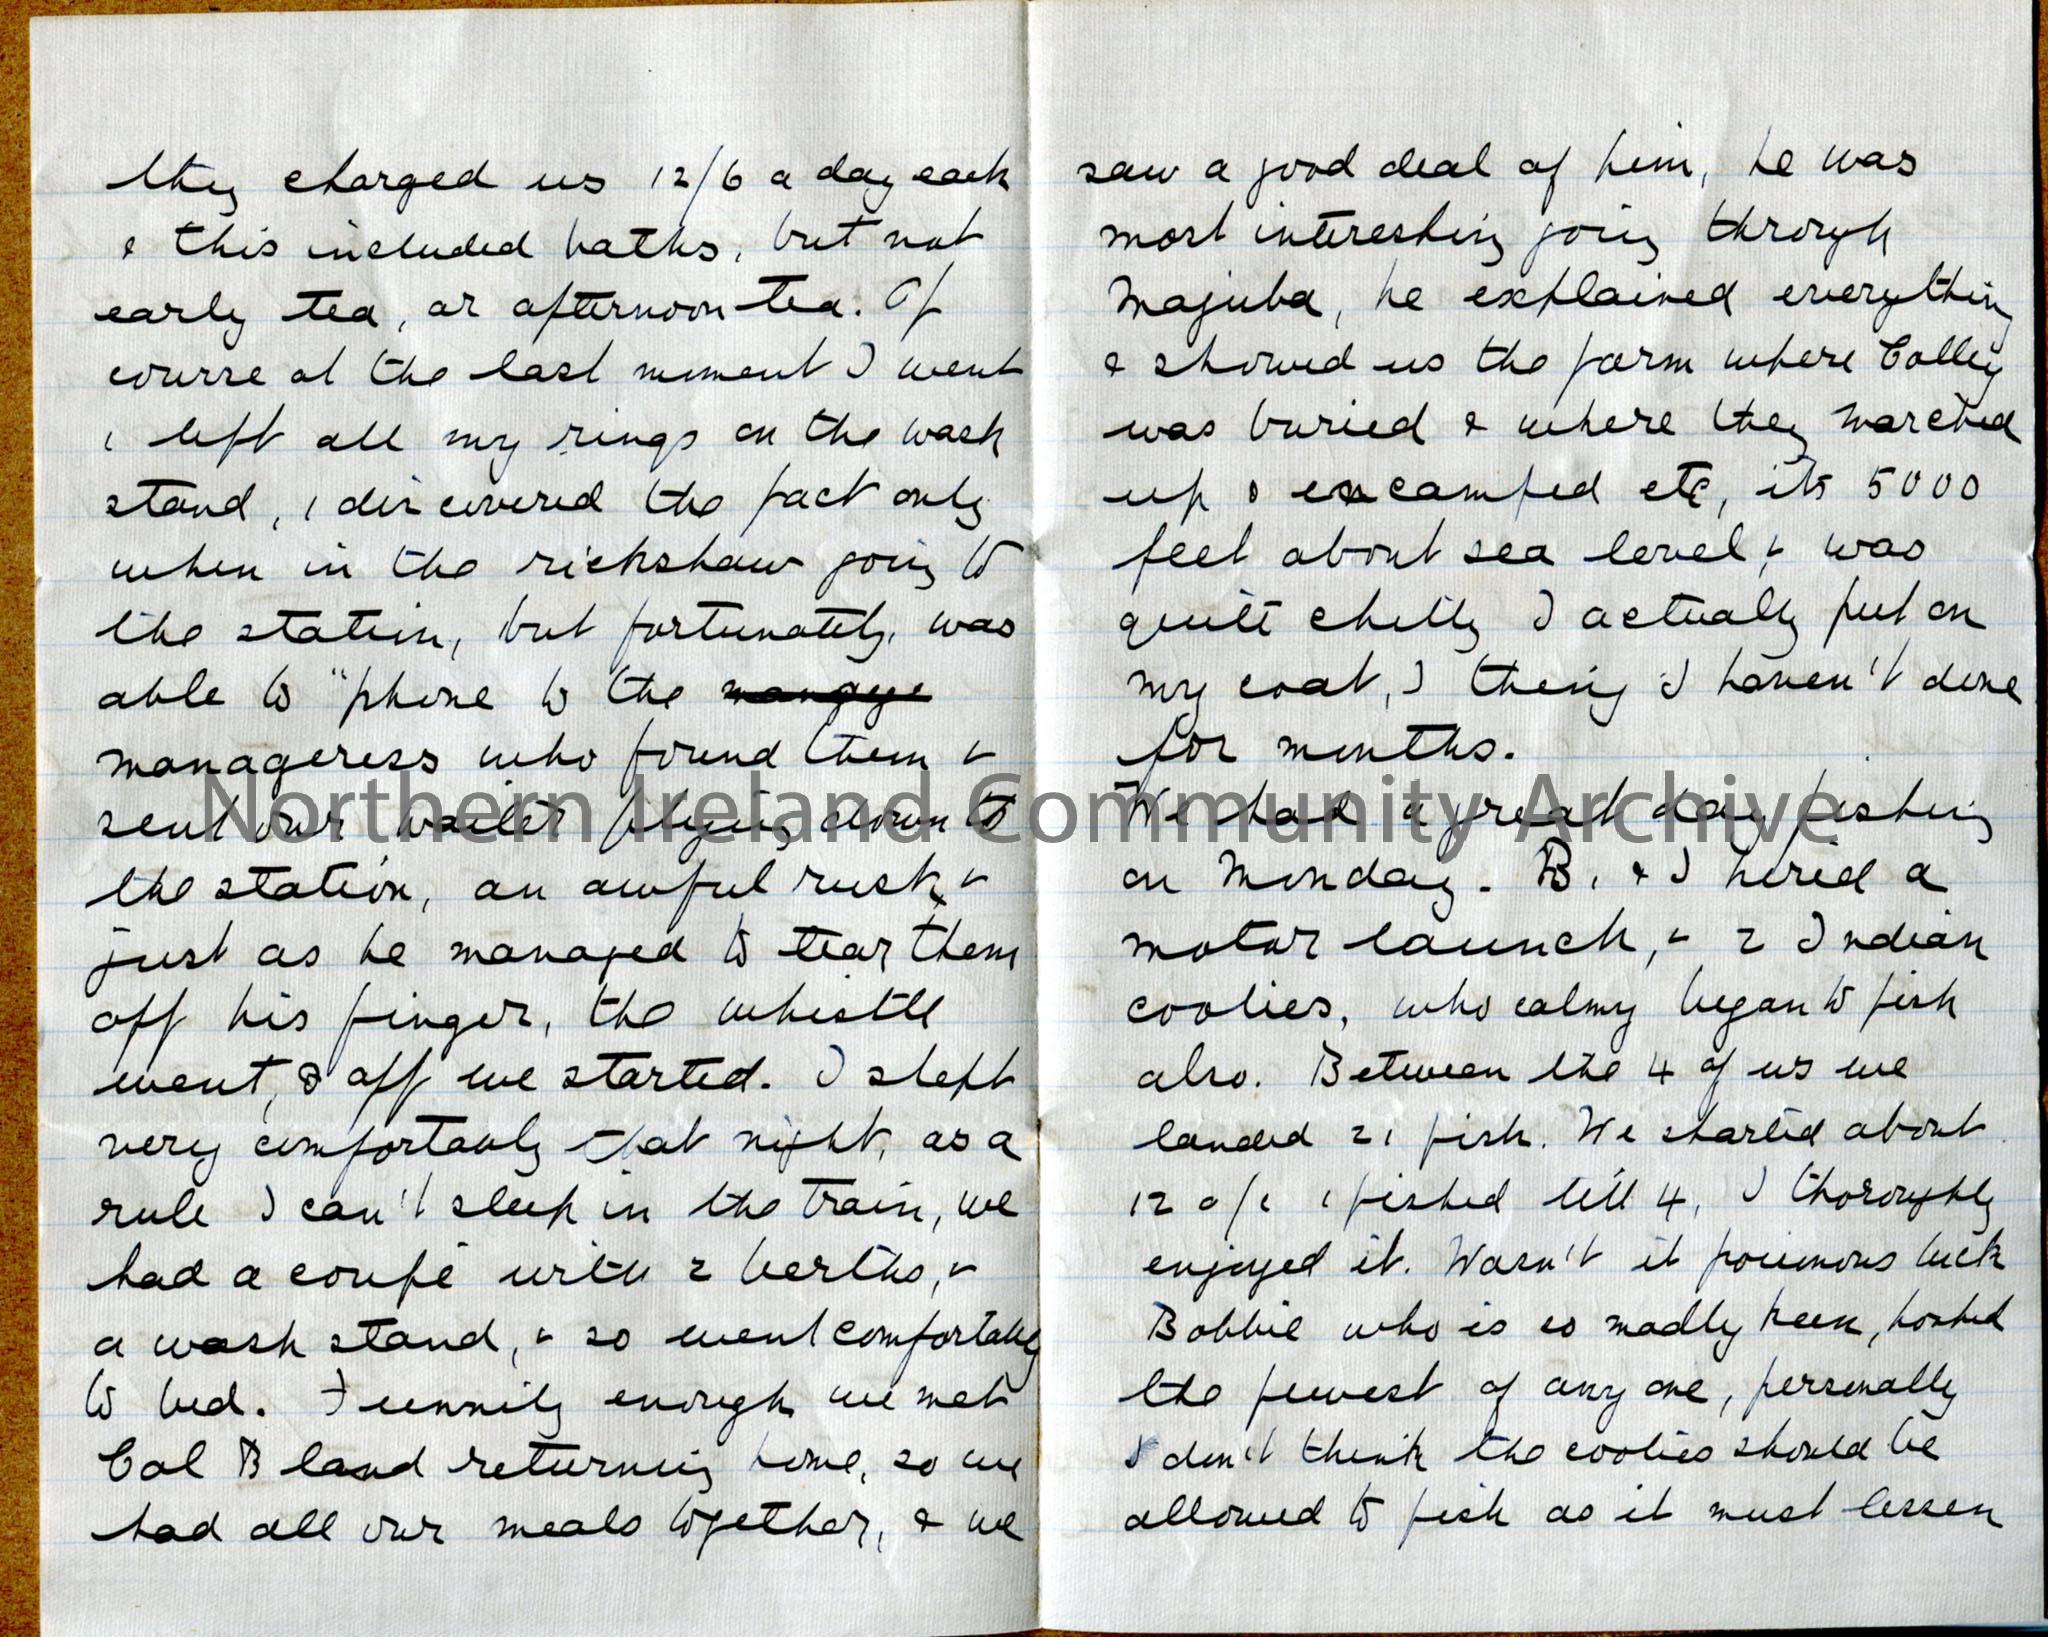 they charged us 12/6 a day each
& this included baths, but not
early tea, or afternoon tea. Of
course at the last moment I went
& left all my rings on the wash
stand, & discovered the fact only
when in the rickshaw going to
the station, but fortunately, was
able to "phone to the manage
manageress who found them &
sent our waiter flying down to
the station, an awful rush, &
just as he managed to tear them
off his finger, the whistle
went, & off we started. I slept
very comfortably that night, as a
rule I can't sleep in the train, we
had a coupé with 2 berths, &
a wash stand, & so went comfortably
to bed. Funnily enough we met
Col B land returning home, so we
had all our meals together, & we
saw a good deal of him, he was
most interesting going through
Majuba, he explained everything
& showed us the farm where Colley
was buried & where they marched
up & encamped etc, its 5000
feet about sea level, & was
quite chilly I actually put on
my coat, I thing I haven't done
for months.
We had a great day fishing
on Monday. B. & I hired a
motor launch, & 2 Indian
coolies, who calmy began to fish
also. Between the 4 of us we
landed 21 fish. We started about
12 o/c & fished till 4, I thoroughly
enjoyed it. Wasn't it poisonous luck
Bobbie who is so madly keen, hooked
the fewest of any one, personally
I don't think the coolies should be
allowed to fish as it must lessen
Northern Ireland Community Archive